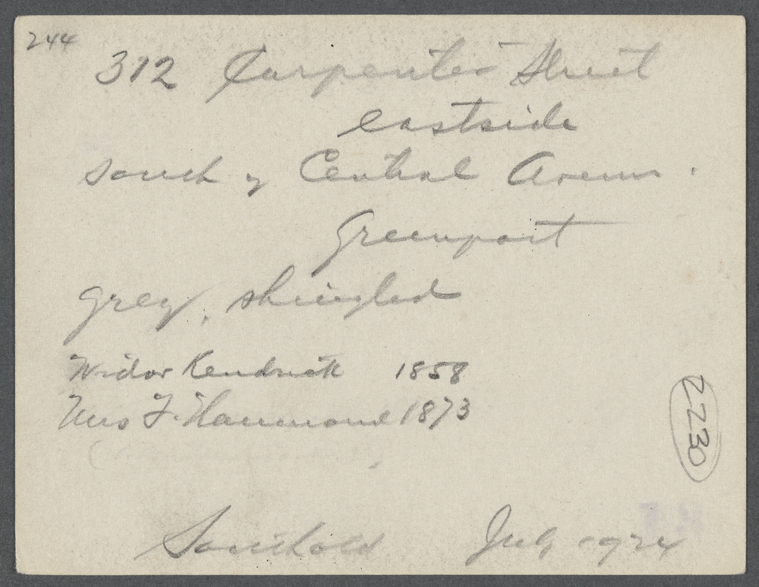 244
312 Carpenter Street
eastside
south of Central Avenue.
Greenport
grey, shingled
Widow Kendrick 1858
Mrs F. Hammond 1873
2230
Southold July 1924